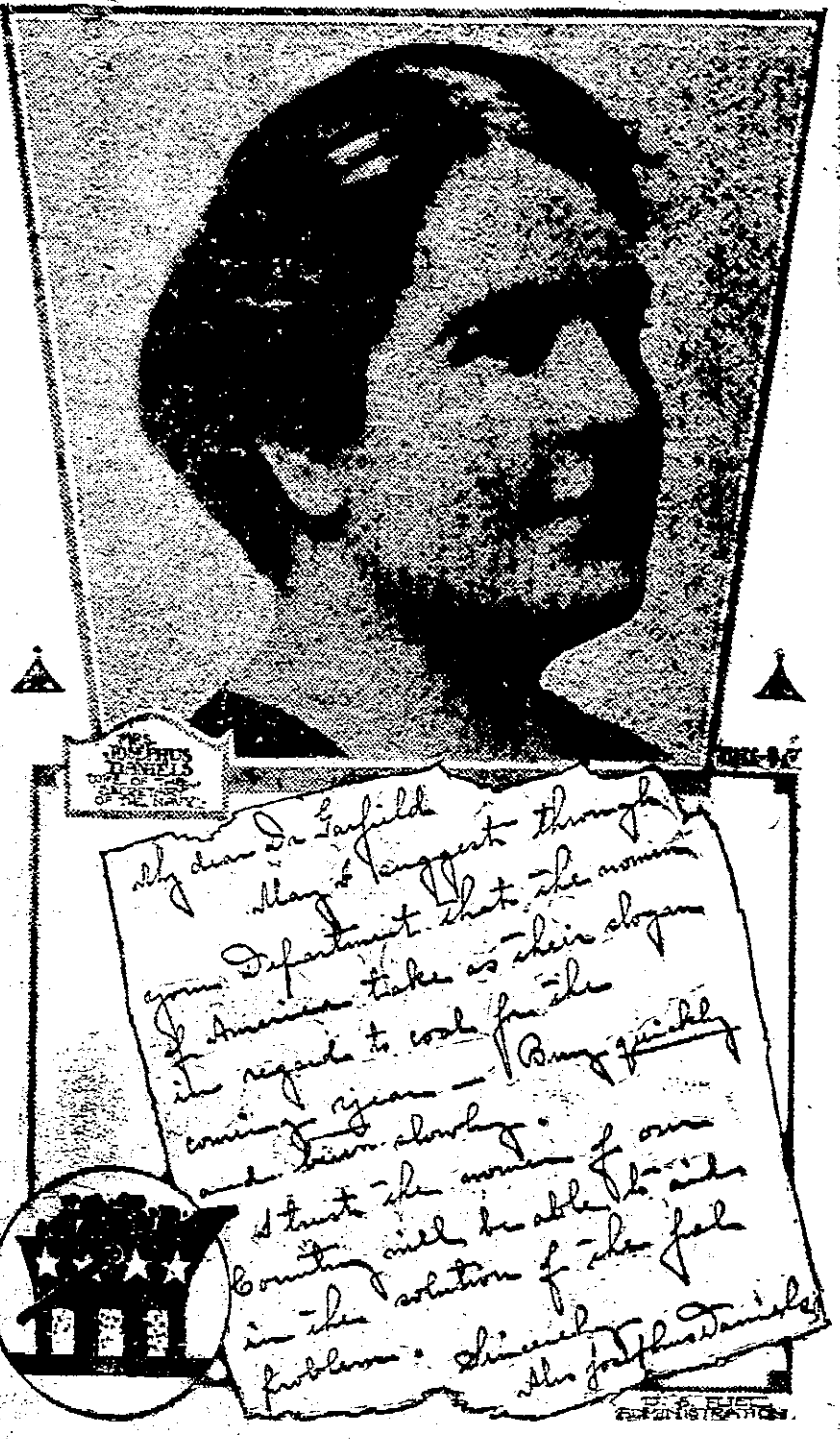 MRS.
JOSEPHUS
DANIELS
WIFE OF THE
SECRETARY
OF THE NAVY
My dear Dr Garfield
May I suggest through
your Department that the women
of America take as their slogan
in regards to coal for the
coming year — Buy quickly
and burn slowly.
I trust the women of our
Country will be able to aid
in the solution of the fuel
problem. Sincerely
Mrs Josephus Daniels
U. S. FUEL
ADMINISTRATION.